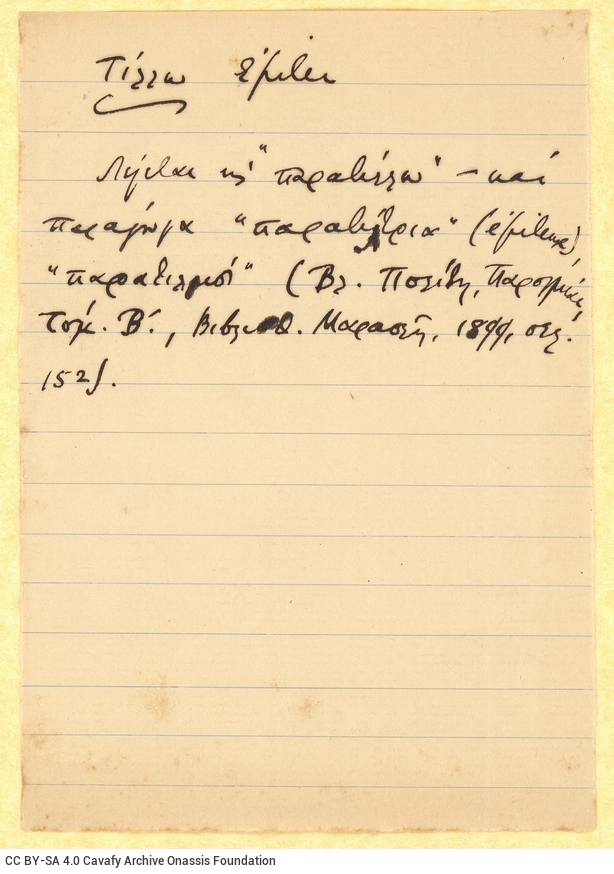 Τίλλω
Λέγεται κ' "παρατίλλω" – και
παράγωγα "παρατίλτρια"
"παρατιλμοί" (Βλ. Πολίτη, Παροιμίαι,
Τόμ. Β'., Βιβλιοθ. Μαρασλή, 1899, σελ.
152).
CC BY-SA 4.0 Cavafy Archive Onassis Foundation